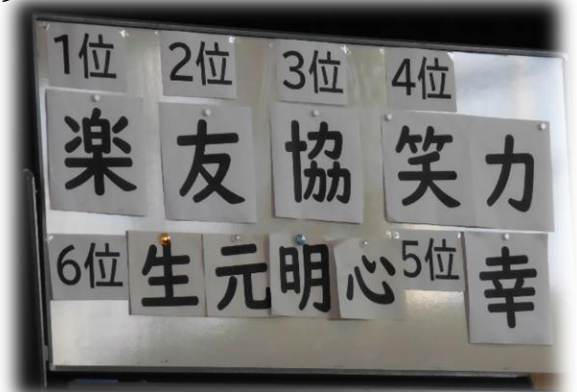 1位 2位 3位 4位
楽 友 協 笑 力
6位 生 元 明 心 5位 幸